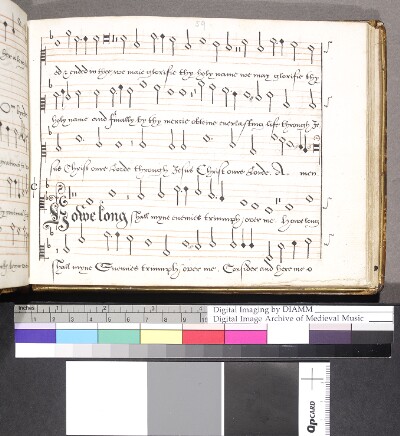 59
ed & ended in thee we maie glorifie thy holy name we may glorifie thy
holy name and finally by thy mercie obteine everlasting life through Je
sus Christ oure Lorde through Jesus Christ oure Lorde. A men
Howe long shall myne enemies triumph over me Howe long
shall myne Enemies triumph over me. Consider and heare me o
inches
Digital Imaging by DIAMM
Digital Image Archive of Medieval Music
QPCARD